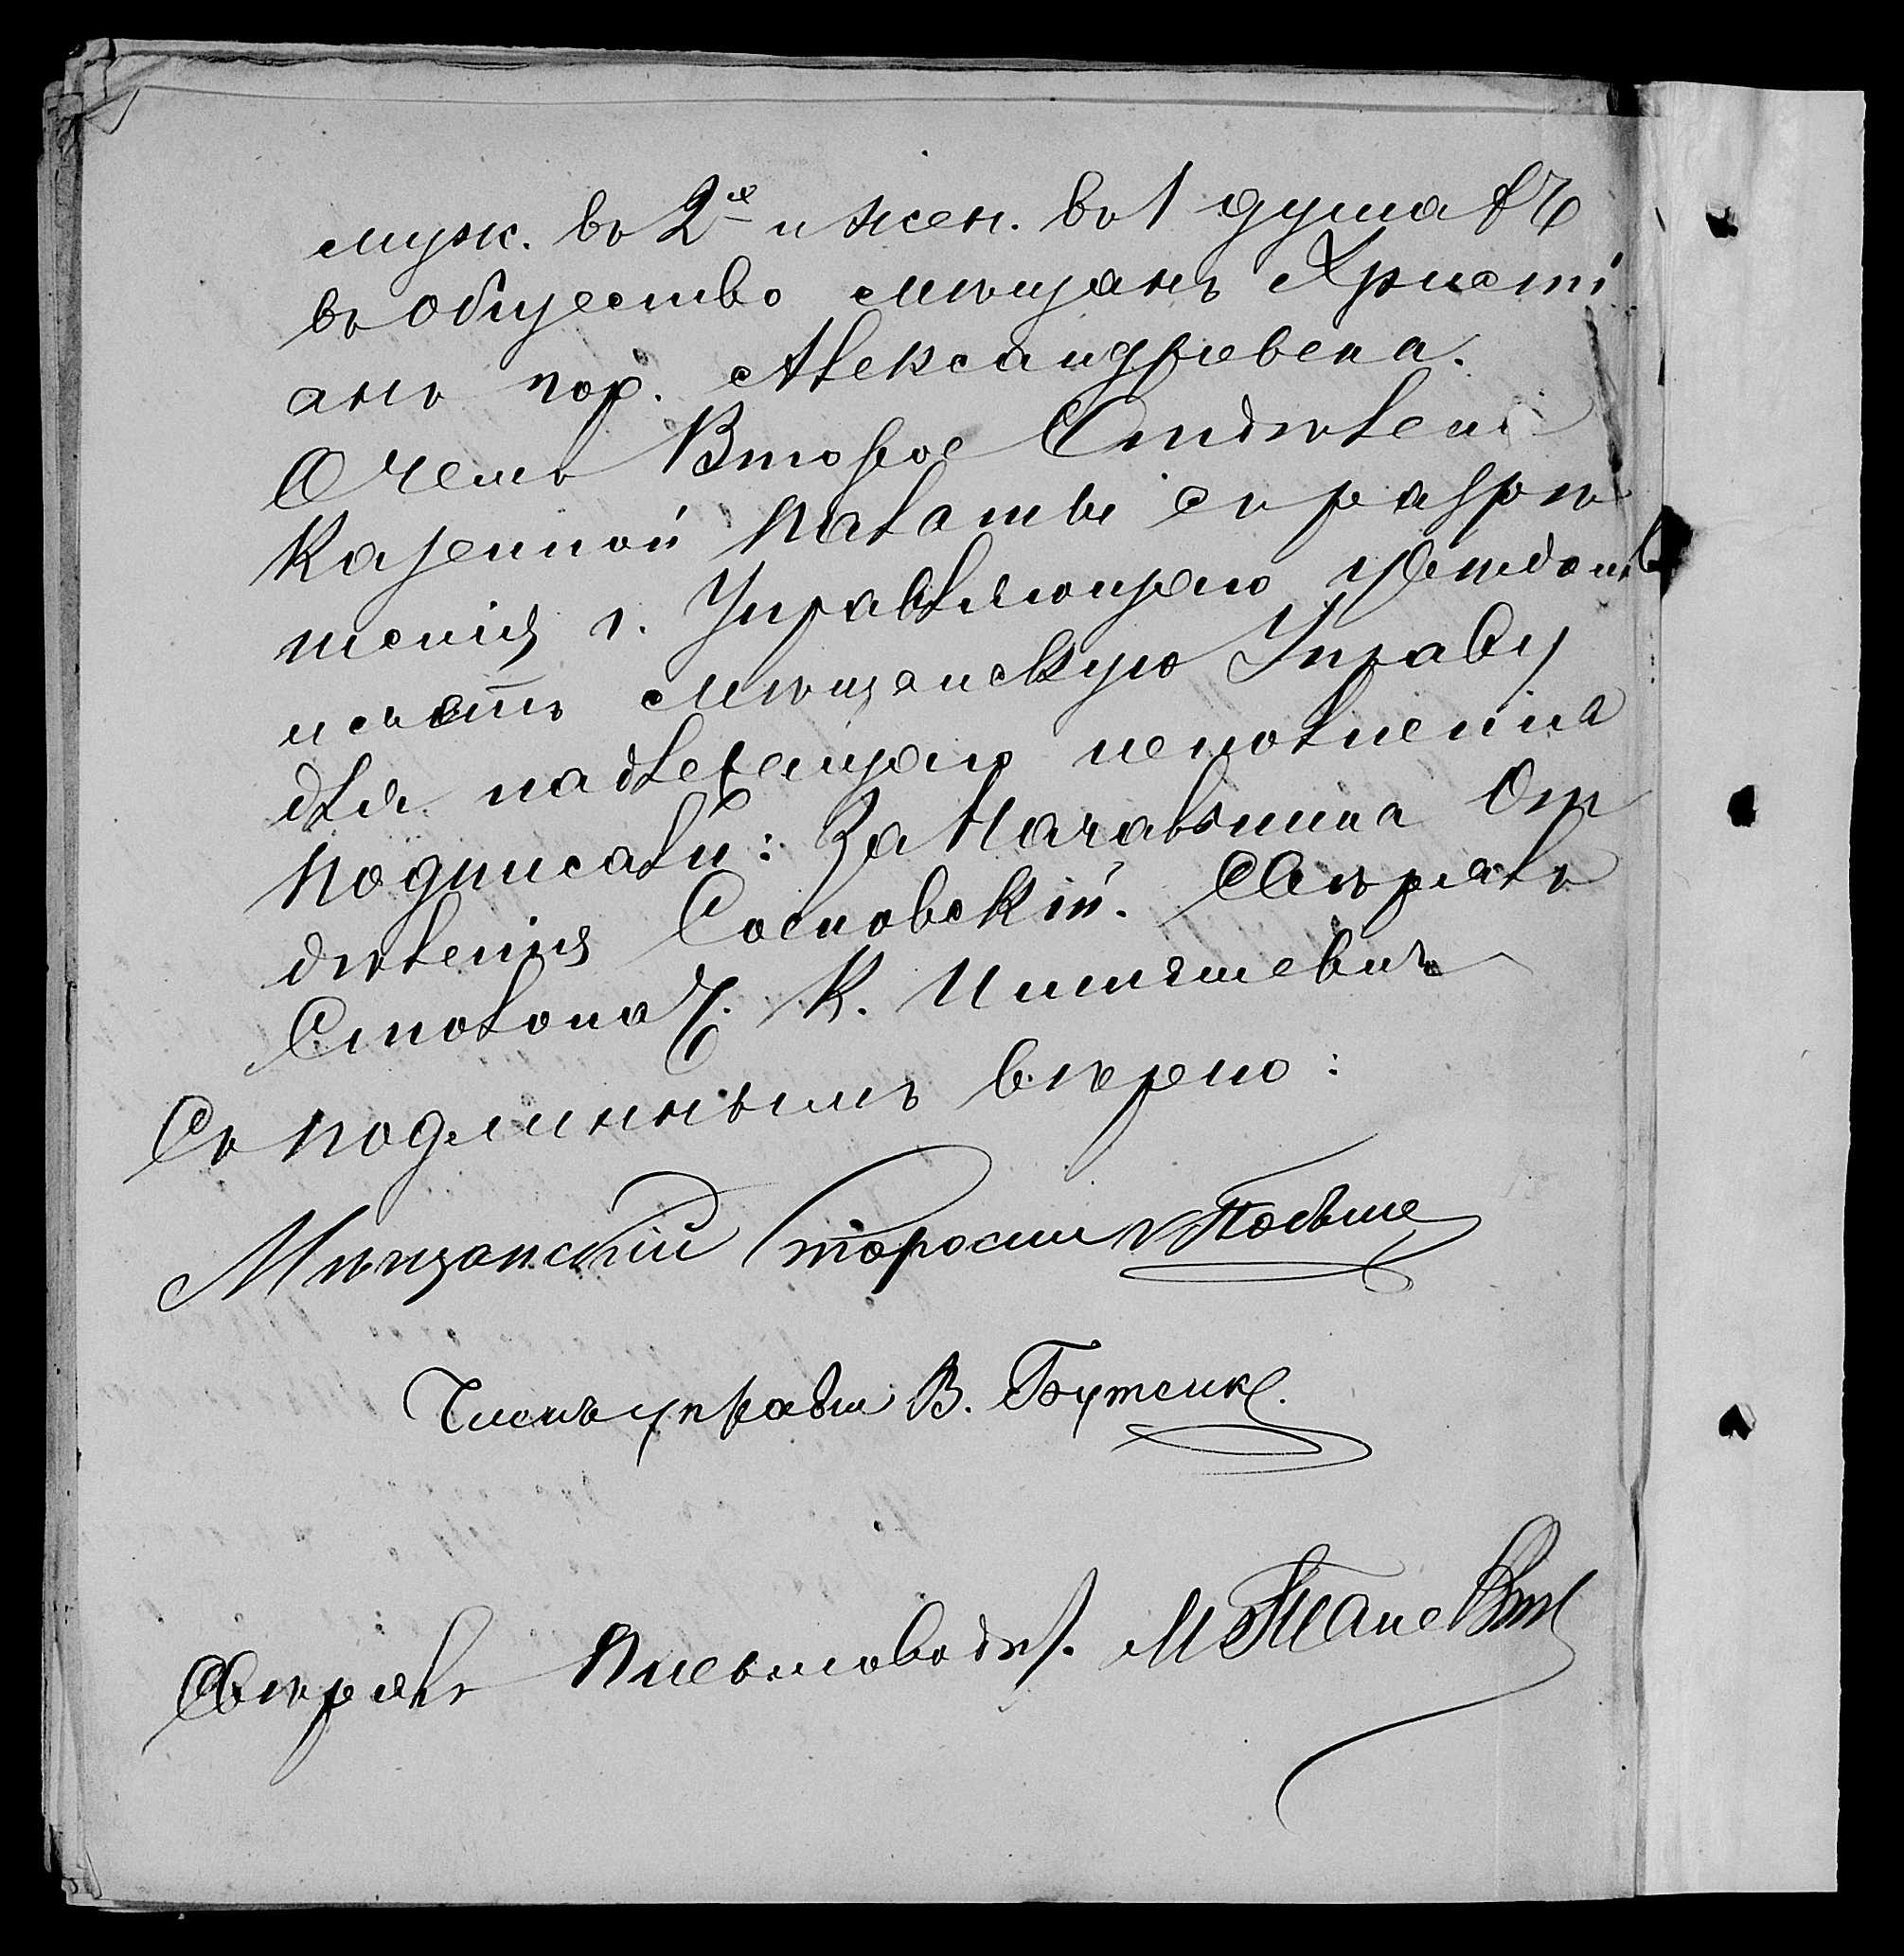 муж. въ 2х и жен. въ 1 душахъ
въ общество мѣщанъ Христі
анъ гор. Александровска.
О чемъ Второе Отдѣлені
Казенной Палаты съ разрѣ
шенія г. Управляющаго увѣдомл
мѣщанскую Управу
для надлежащаго исполненія
Подписали: За Начальника От
дѣленія Сосновскій. Свѣрялъ
Столонач. К.
Съ подлиннымъ вѣрно:
Мѣщанскій Староста
Членъ управы В. Бутенко.
Свѣрялъ Письмоводит. М.